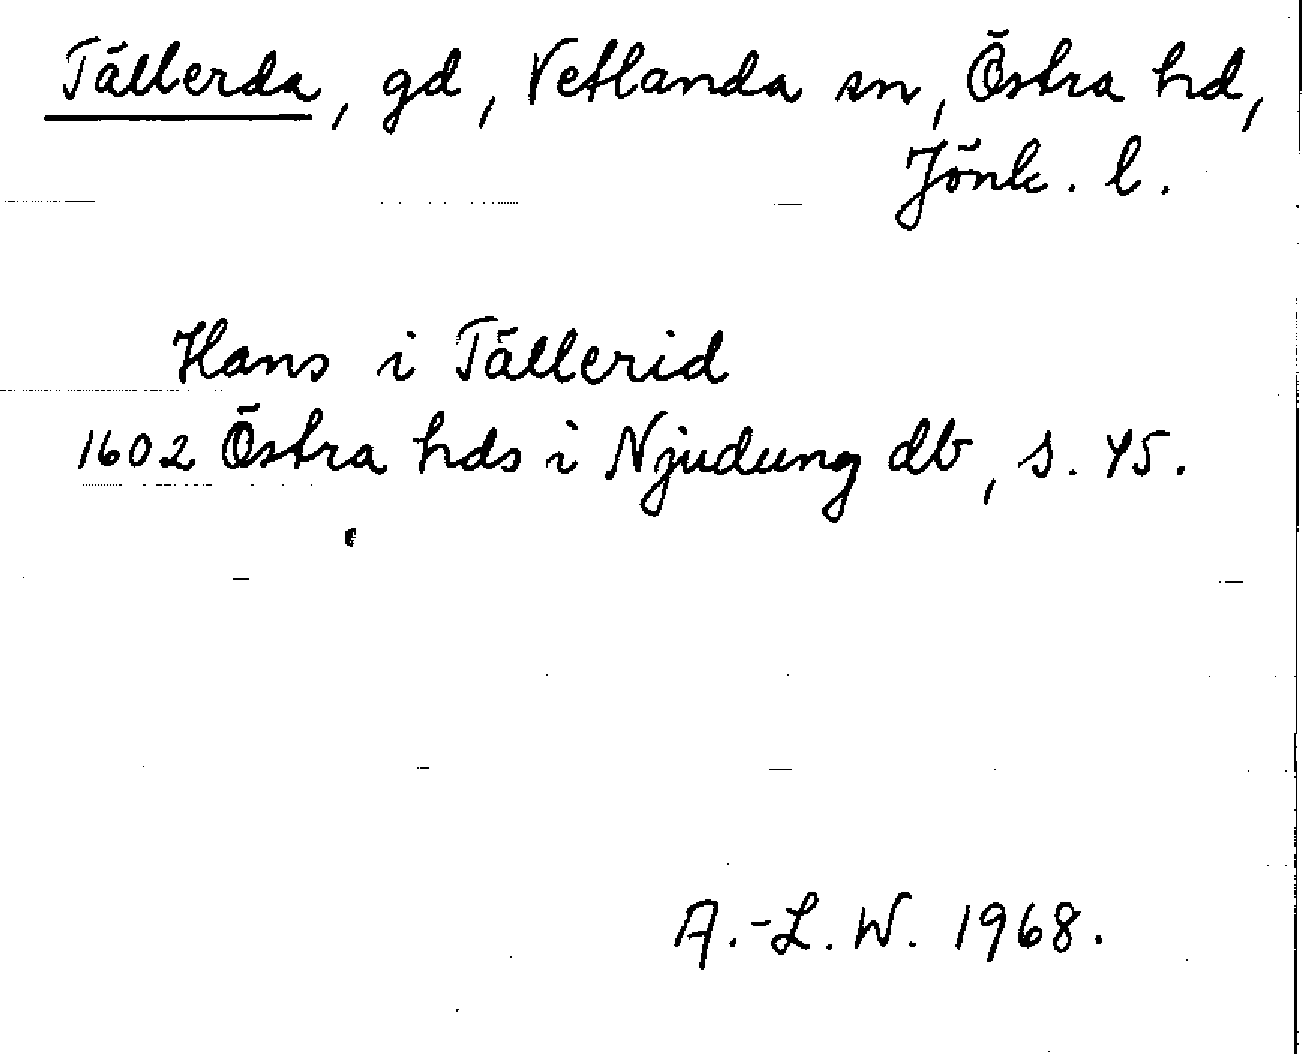 Tällerda, gd, Vetlanda sn, Östra hd,
Jönk. l.
Hans i Tällerid
1602 Östra hds i Njudung db, s. 45.
A.-L. W. 1968.